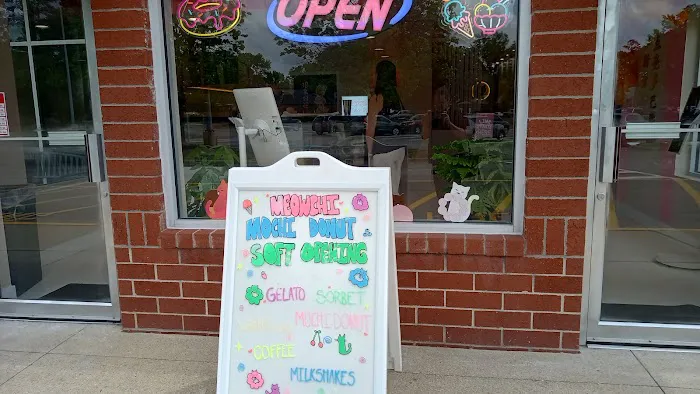 OPEN
MEOWCHI
MOCHI DONUT
SOFT OPENING
GELATO SORBET
MOCHI DONUT
COFFEE
MILKSHAKES